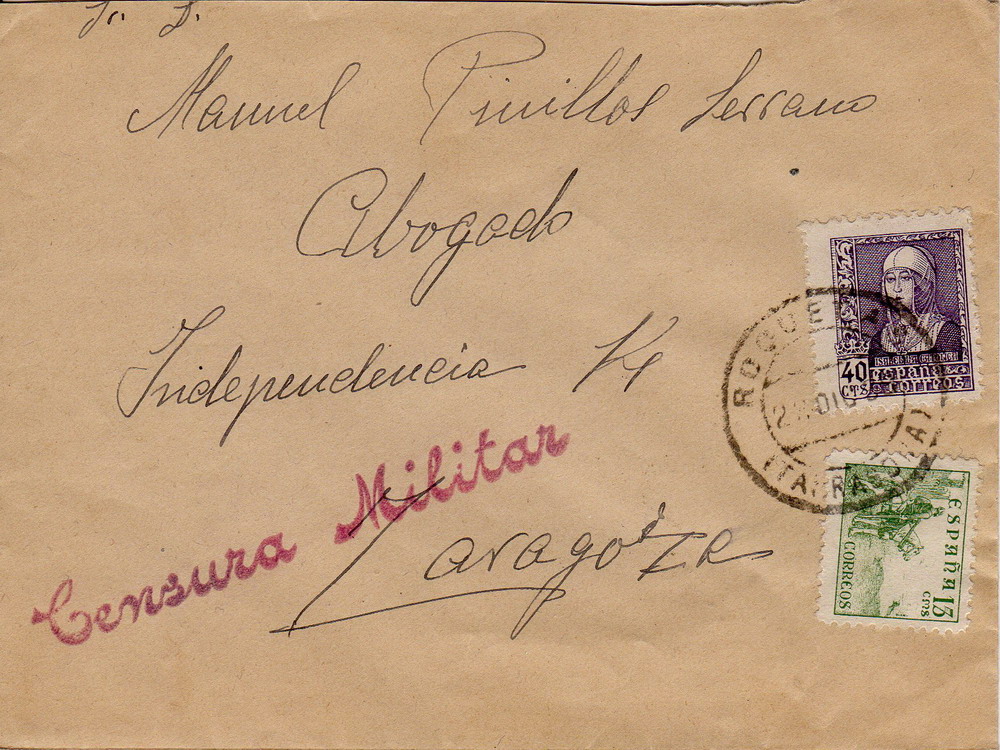 Sr. D.
Manuel Pinillos Serrano
Abogado
Independencia
Zaragoza
Censura Militar
ISABEL LA CATOLICA
40 CTS
ESPAÑA
CORREOS
ROQUE
2 DIC
(TARRAGONA)
ESPAÑA 15 CTS
CORREOS